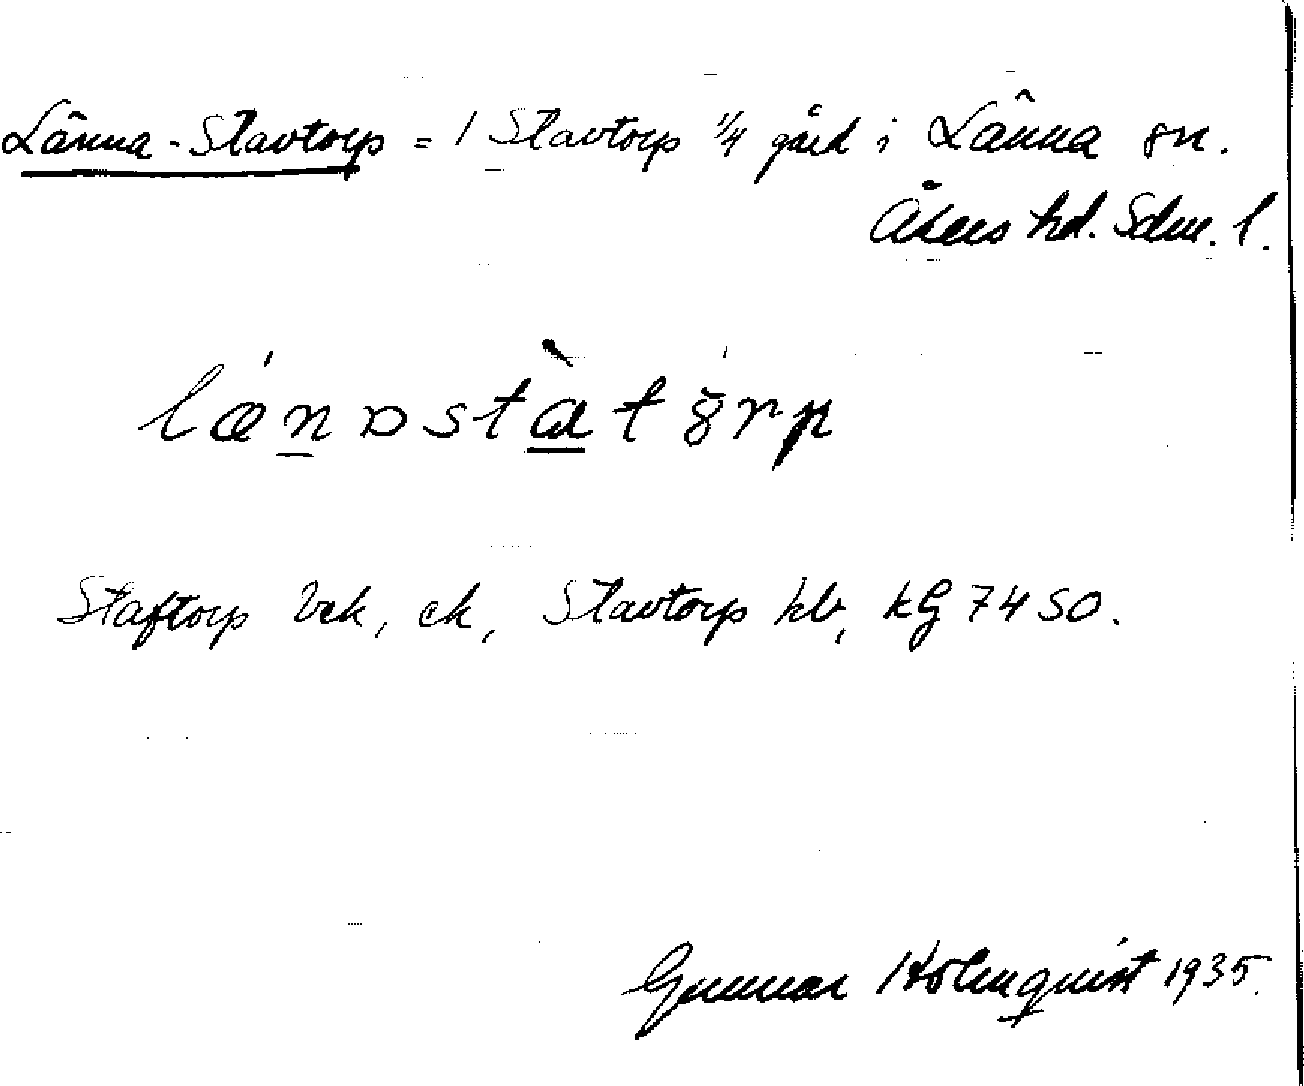 Länna-Stavtorp = 1 Stavtorp 1/4 gård i Länna sn.
Åkers hd. Sdm. l.
Staftorp Vek, ek, Stavtorp hb, kG 74 SO.
Gunnar Holmquist 1935.